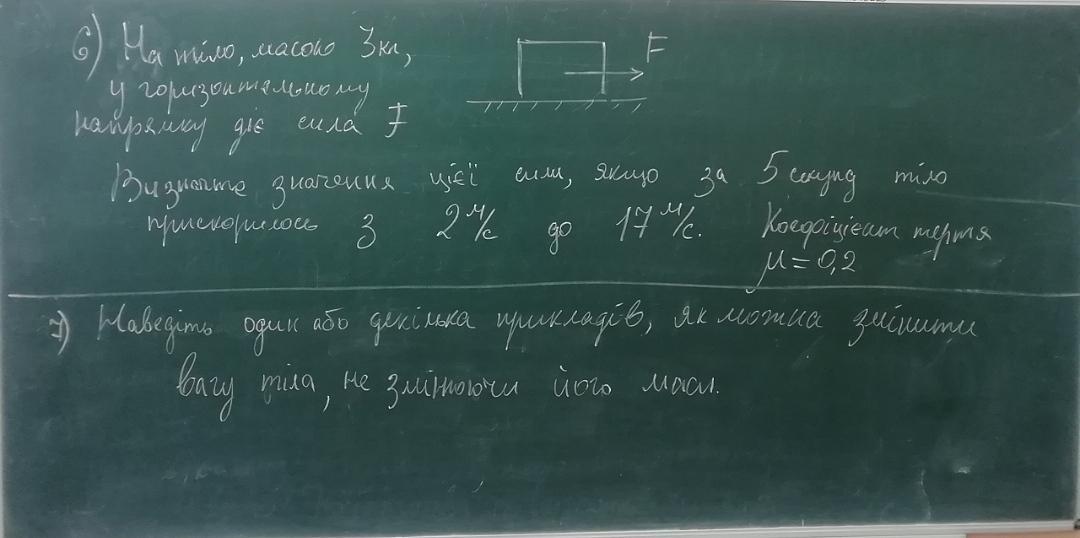 6) На тіло, масою 3кг,
F
у горизонтальному
напрямку діє сила F
Визначте значення цієї сили, якщо за 5 секунд тіло
прискорилось з 2 м/с до 17 м/с. Коефіцієнт тертя
μ = 0,2
7) Наведіть один або декілька прикладів, як можна змінити
вагу тіла, не змінюючи його маси.